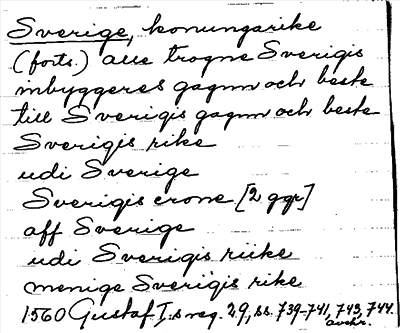 Sverige, konungarike
(forts.) alle trogne Sverigis
inbyggeres gagnn och beste
till Sverigis gagnn och beste
Sverigis rike
udi Sverige
Sverigis crone [2 ggr]
aff Sverige
udi Sverigis riike
menige Sverigis rike
1560 Gustaf I:s reg. 29, ss. 739-741, 743, 744.
avskr.